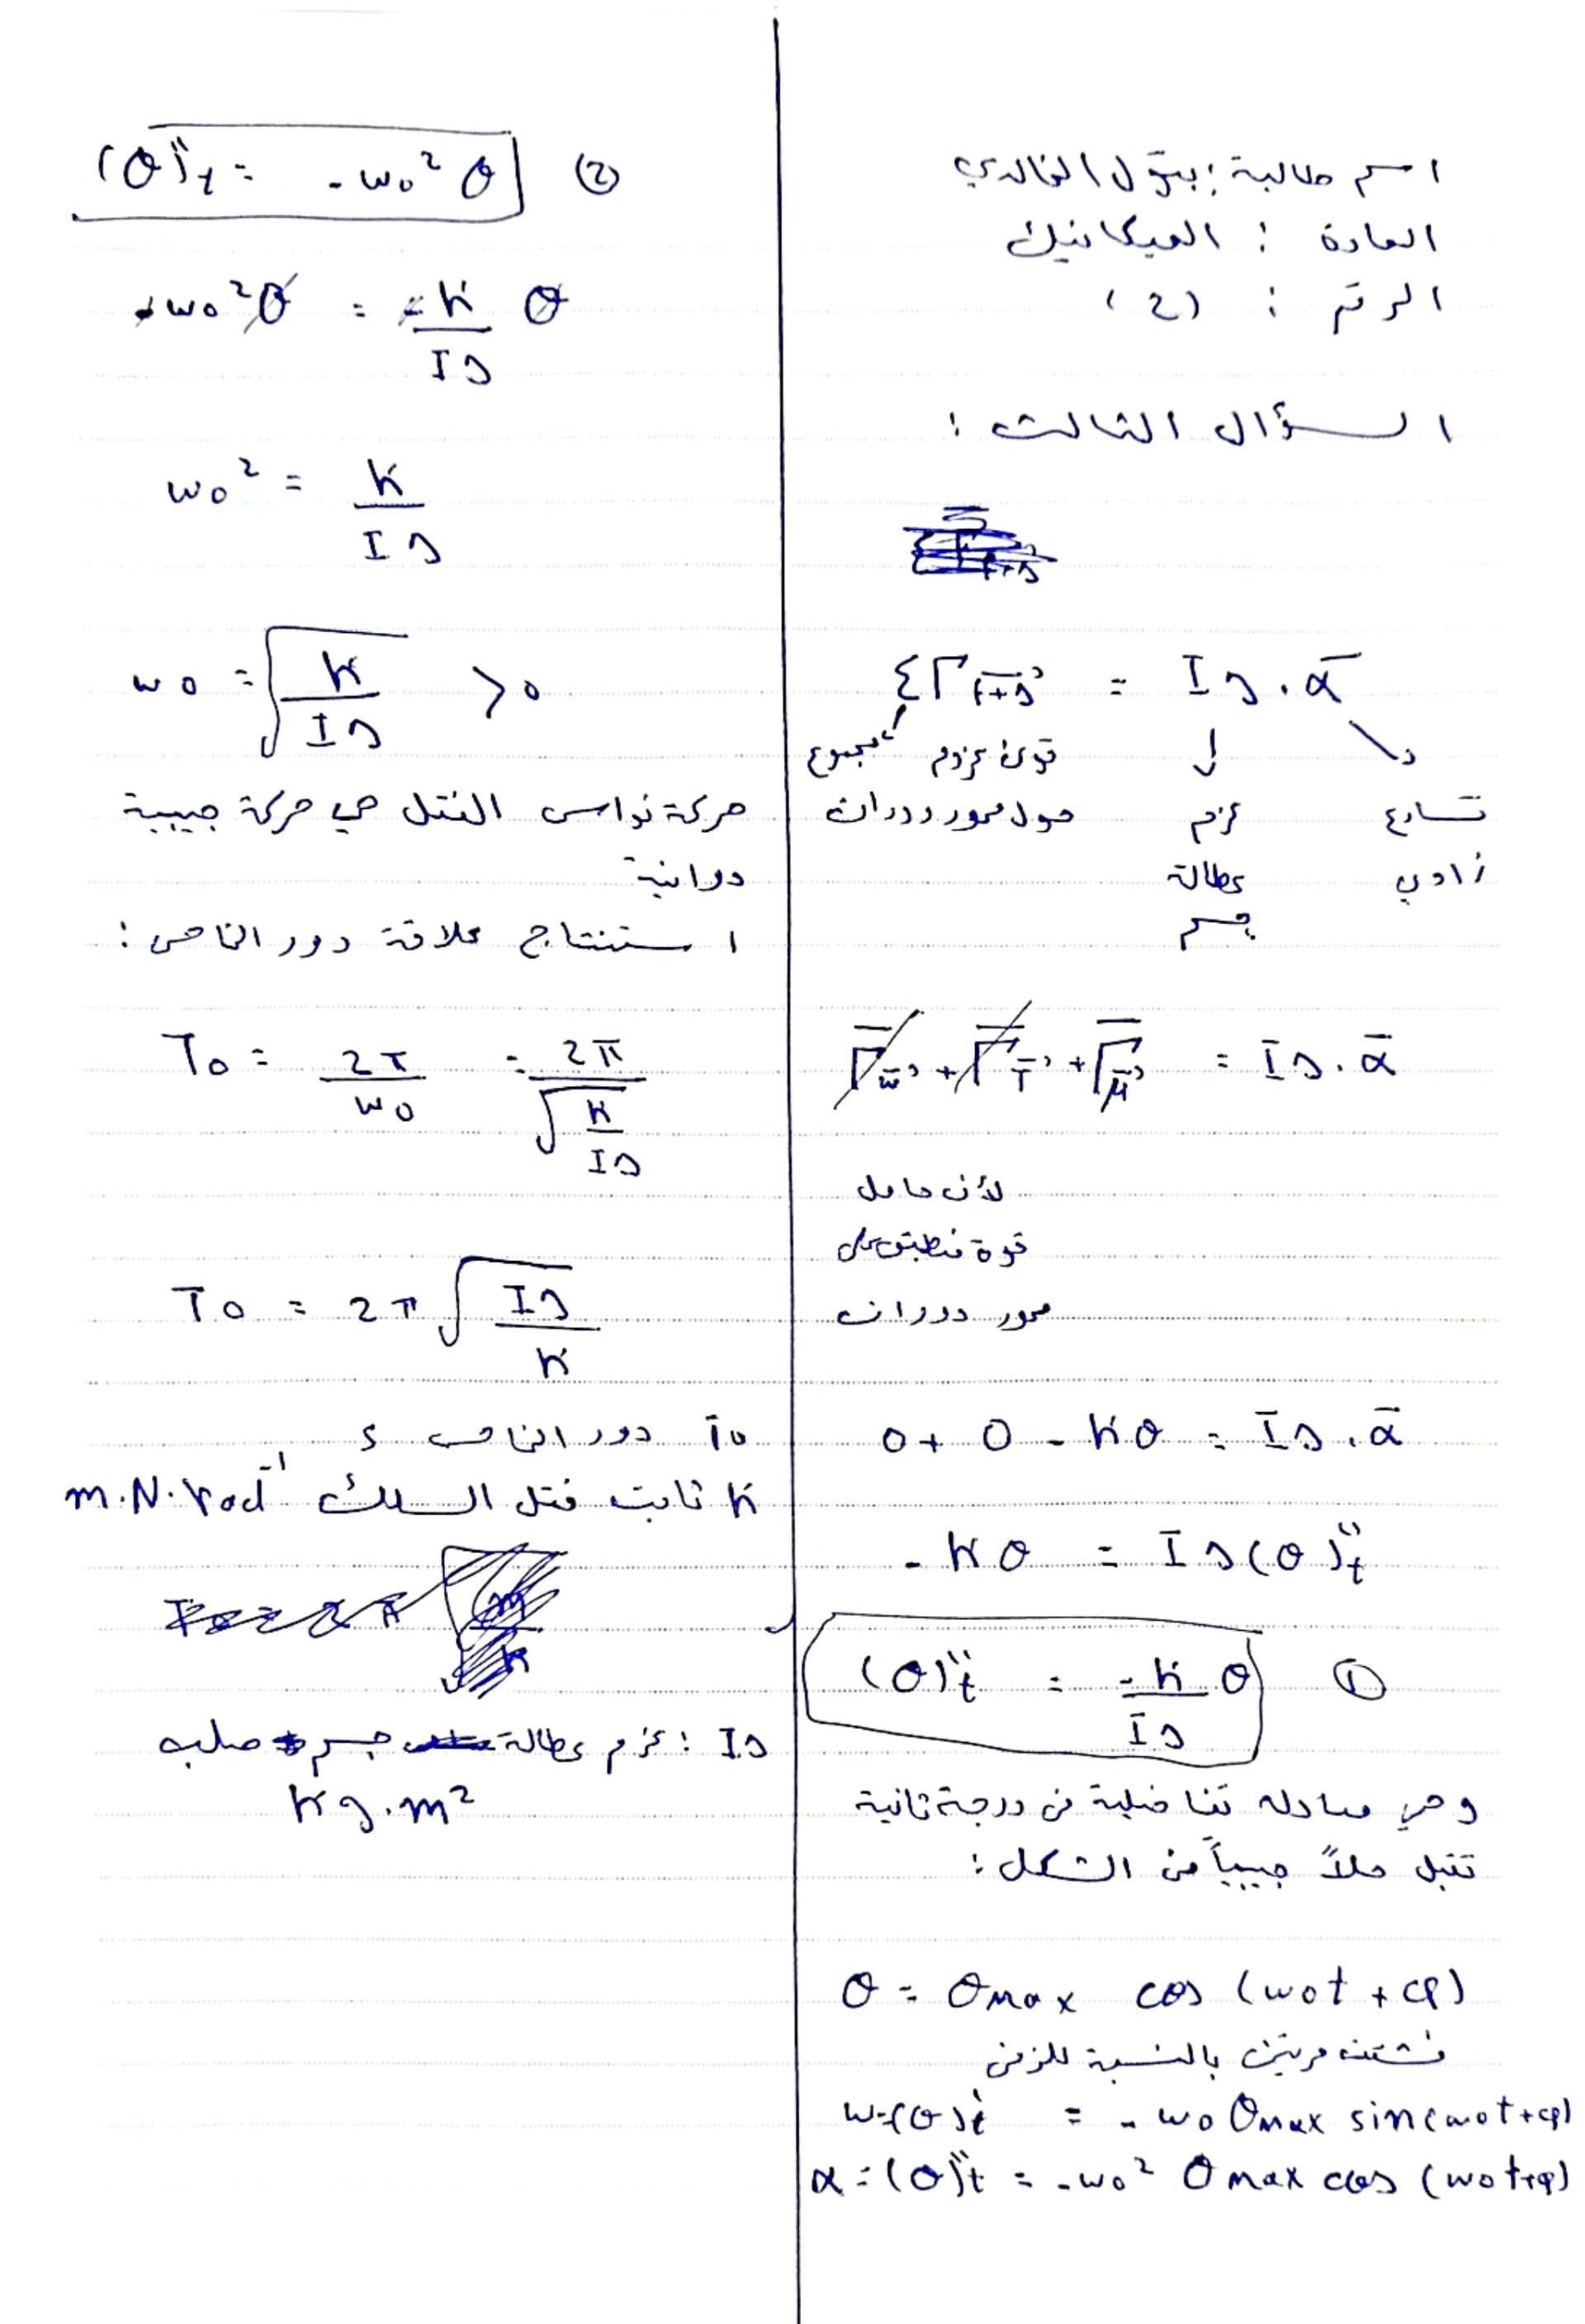 اسم طالبة : بتول الخالدي
المادة : الميكانيك
الرقم : (2)
السؤال الثالث :
ΣΓ F/Δ = IΔ . α
مجموع عزوم قوى
حول محور دوران
عزم
عطالة
جسم
تسارع
زاوي
Γw + ΓT + Γη = IΔ . α
لأن حامل
قوة منطبق على
محور دوران
0 + 0 - Kθ = IΔ . α
- Kθ = IΔ (θ)"t
(θ)"t = -K/IΔ θ ①
وهي معادلة تفاضلية من درجة ثانية
تقبل حلاً جيبياً من الشكل :
θ = θmax cos (ω0t + φ)
نشتق مرتين بالنسبة للزمن
ω=(θ)'t = - ω0 θmax sin(ω0t+φ)
α = (θ)"t = -ω0² θmax cos (ω0t+φ)
(θ)"t = - ω0² θ ②
-ω0² θ = -K/IΔ θ
ω0² = K/IΔ
ω0 = √(K/IΔ) > 0
حركة نواس الفتل هي حركة جيبية
دورانية
استنتاج علاقة دور الخاص :
T0 = 2π/ω0 = 2π/√(K/IΔ)
T0 = 2π √(IΔ/K)
T0 دور الخاص s
K ثابت فتل السلك m.N.rad⁻¹
IΔ : عزم عطالة جسم صلب
Kg.m²